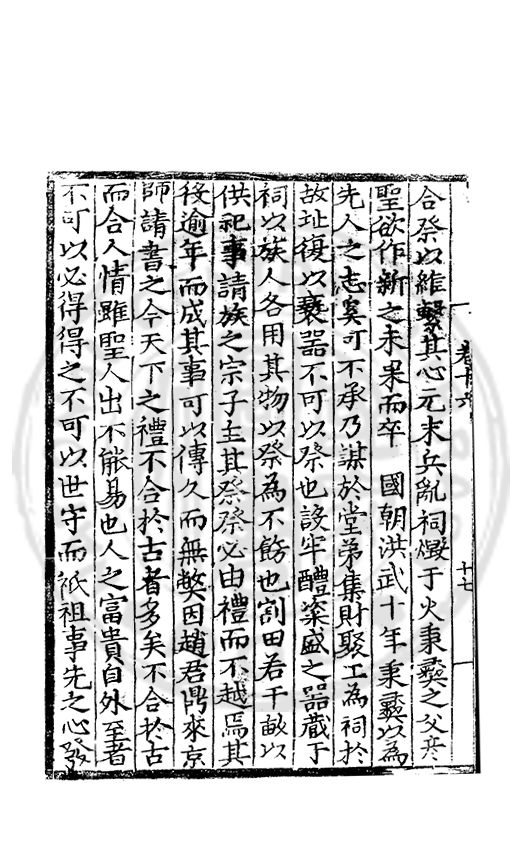 合祭以維繫其心元末兵亂祠燬于火秉彝之父彥
聖欲作新之未果而卒 國朝洪武十年秉彝以為
先人之志奚可不承乃謀於堂弟集財聚工為祠於
故址復以褻器不可以祭也設牢醴粢盛之器藏于
祠以族人各用其物以祭為不飭也割田若干畝以
供祀事請族之宗子主其祭祭必由禮而不越焉其
後逾年而成其事可以傳久而無弊因趙君門來京
師請書之今天下之禮不合於古者多矣不合於古
而合人情雖聖人出不能易也人之富貴自外至者
不可以必得得之不可以世守而祇祖事先之心發
卷十六
十七